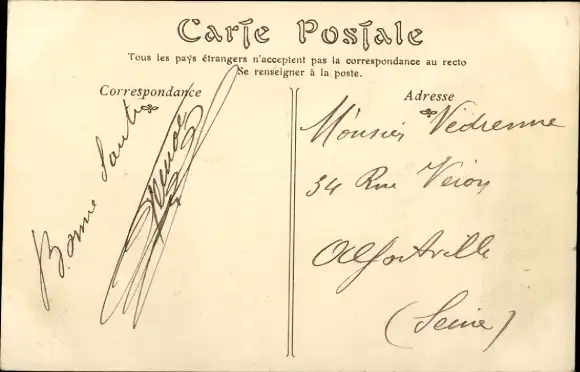 Carte Postale
Tous les pays étrangers n'acceptent pas la correspondance au recto
Se renseigner à la poste.
Correspondance
Adresse
Bonne Santé
Monsieur Védrenne
34 Rue Véron
Alfortville
(Seine)